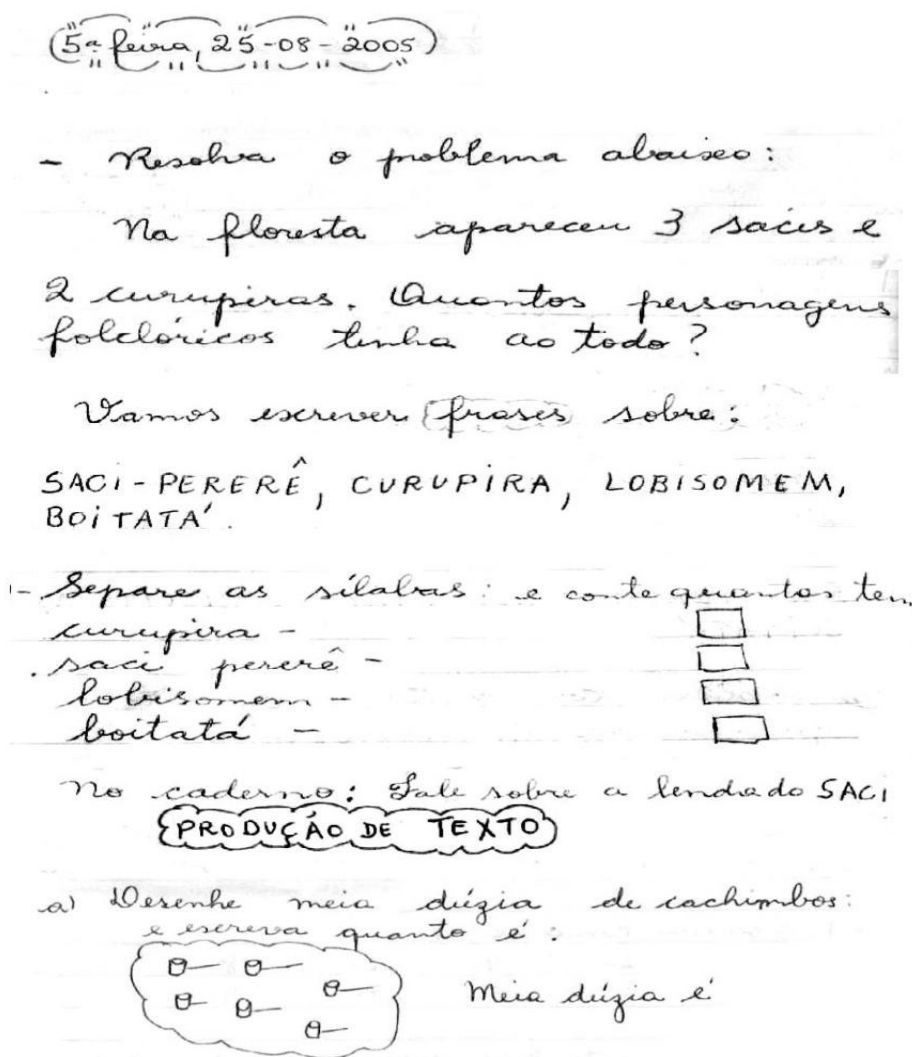 5ª feira, 25-08-2005
- Resolva o problema abaixo:
Na floresta apareceu 3 sacis e
2 curupiras. Quantos personagens
folclóricos tinha ao todo?
Vamos escrever frases sobre:
SACI-PERERÊ, CURUPIRA, LOBISOMEM,
BOITATÁ.
- Separe as sílabas: e conte quantas tem.
curupira -
saci pererê -
lobisomem -
boitatá -
No caderno: Fale sobre a lenda do SACI
PRODUÇÃO DE TEXTO
a) Desenhe meia dúzia de cachimbos:
e escreva quanto é:
Meia dúzia é